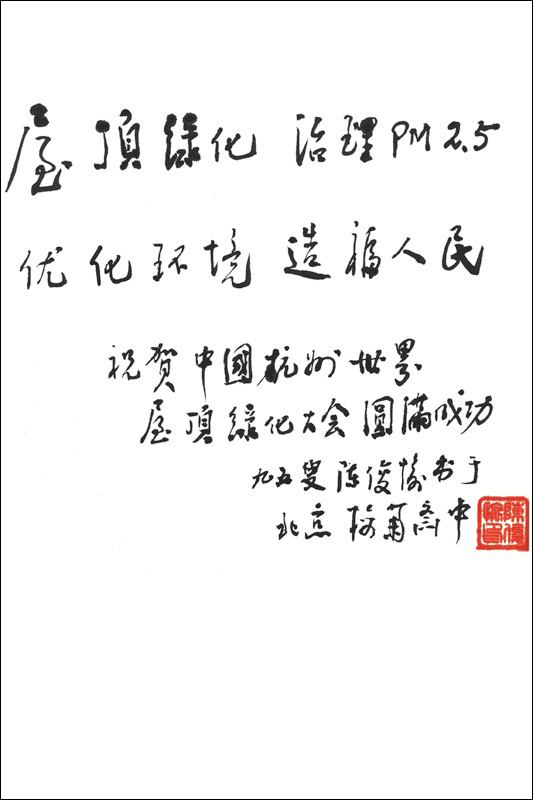 屋頂緑化 治理PM2.5
优化环境 造福人民
祝賀中國杭州世界
屋頂緑化大会圓滿成功
九五叟陈俊愉书于
北京梅菊斋中